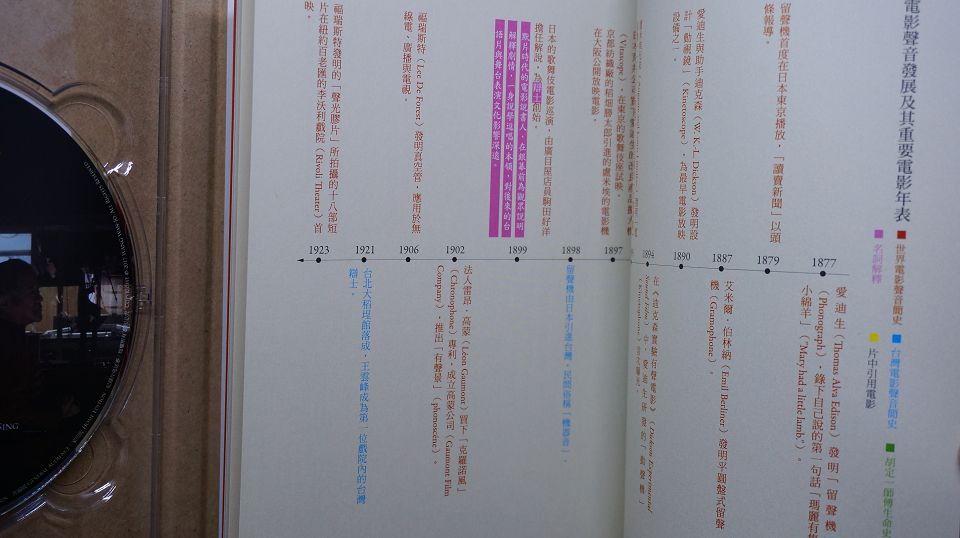 電影聲音發展及其重要電影年表
世界電影聲音簡史
台灣電影聲音簡史
胡定一師傅生命史
名詞解釋
片中引用電影
1877
愛迪生(Thomas Alva Edison)發明「留聲機
(Phonograph),錄下自己說的第一句話「瑪麗有隻
小綿羊」("Mary had a little lamb.")。
1879
留聲機首度在日本東京播放,「讀賣新聞」以頭
條報導。
1887
艾米爾.伯林納(Emil Berliner)發明平圓盤式留聲
機(Gramophone)。
1890
愛迪生與助手迪克森(W. K. L. Dickson)發明設
計「動視鏡」(Kinetoscope),為最早電影放映
設備之一。
1894
在《迪克森實驗有聲電影》(Dickson Experimental
Sound Film)中,愛迪生所發的「
1897
(Vitascope),在東京的歌舞伎座試映。
京都紡織廠的稻畑勝太郎引進的盧米埃的電影機
在大阪公開放映電影。
1898
留聲機由日本引進台灣,民間俗稱「機器音」。
1899
日本的歌舞伎電影巡演,由廣目屋店員駒田好洋
擔任解說,為辯士創始。
默片時代的電影說書人,在銀幕前為觀眾說明
解釋劇情,一身說學逗唱的本領,對後來的台
語片與舞台表演文化影響深遠。
1902
法人雷昂.高蒙(Léon Gaumont)買下「克羅諾風」
(Chronophone)專利,成立高蒙公司(Gaumont Film
Company),推出「有聲景」(phonoscène)。
1906
福瑞斯特(Lee De Forest)發明真空管,應用於無
線電、廣播與電視。
1921
台北大稻埕館落成,王雲峰成為第一位戲院內的台灣
辯士。
1923
福瑞斯特發明的「聲光膠片」所拍攝的十八部短
片在紐約百老匯的李沃利戲院(Rivoli Theater)首
映。